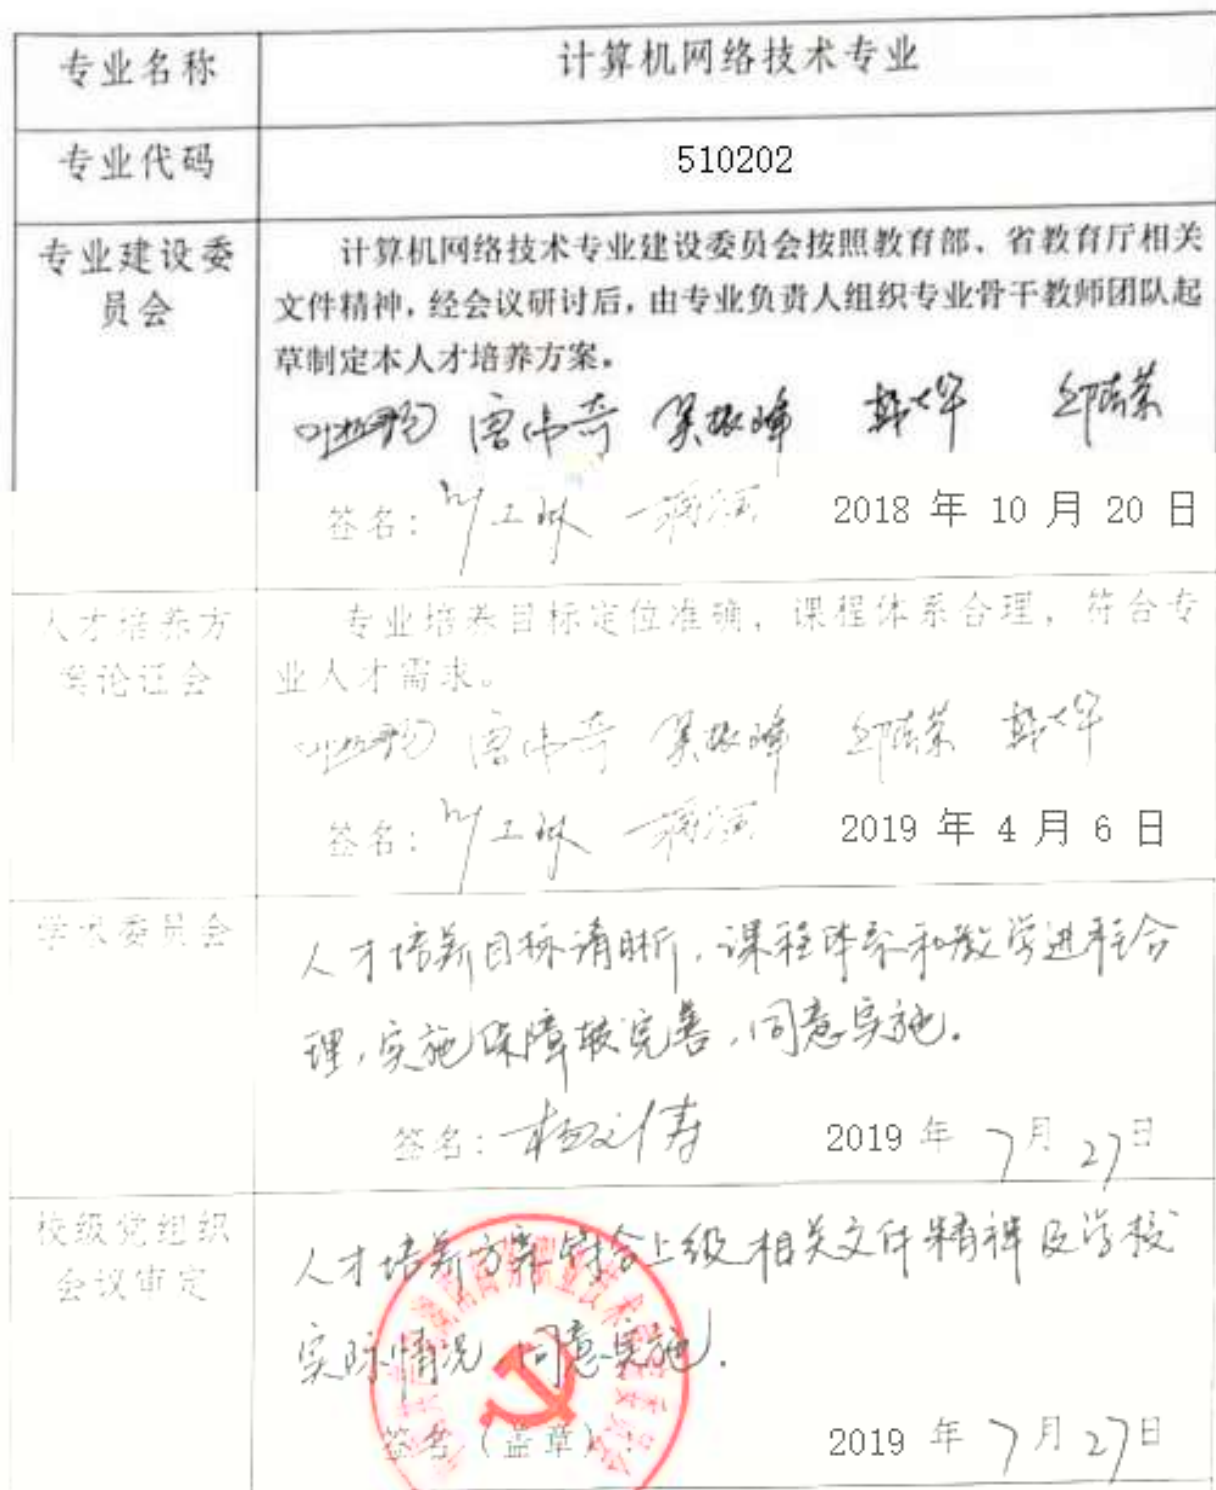 专业名称
计算机网络技术专业
专业代码
510202
专业建设委
员会
计算机网络技术专业建设委员会按照教育部、省教育厅相关
文件精神，经会议研讨后，由专业负责人组织专业骨干教师团队起
草制定本人才培养方案。
唐伟奇 吴振峰
签名： 2018 年 10 月 20 日
人才培养方
案论证会
专业培养目标定位准确，课程体系合理，符合专
业人才需求。
唐伟奇 吴振峰
签名： 2019 年 4 月 6 日
学术委员会
人才培养目标清晰，课程体系和教学进程合
理，实施保障较完善，同意实施。
签名： 2019 年 7 月 27 日
校级党组织
会议审定
人才培养方案符合上级相关文件精神及学校
实际情况，同意实施。
签名（盖章）： 2019 年 7 月 27 日